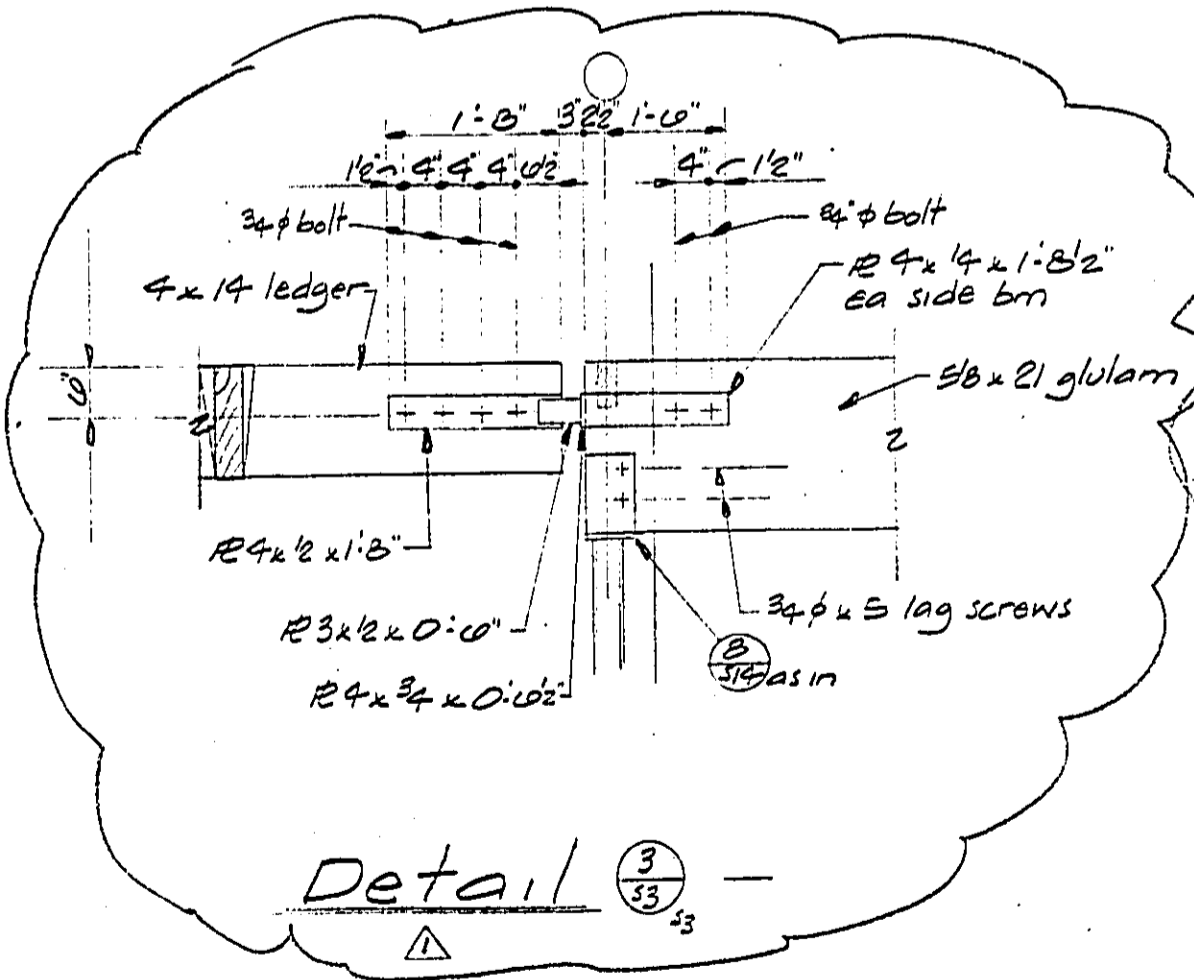 1'-8" 3" 2½" 1'-6"
1½" 4" 4" 4" 6½" 4" 1½"
¾φ bolt
¾"φ bolt
4 x 14 ledger
PL 4 x ¼ x 1'-8½"
ea side bm
6"
5⅛ x 21 glulam
PL 4 x ½ x 1'-8"
PL 3 x ½ x 0'-6"
¾φ x 5 lag screws
PL 4 x ¾ x 0'-6½"
8
S14 as in
Detail
3
S3
S3
1